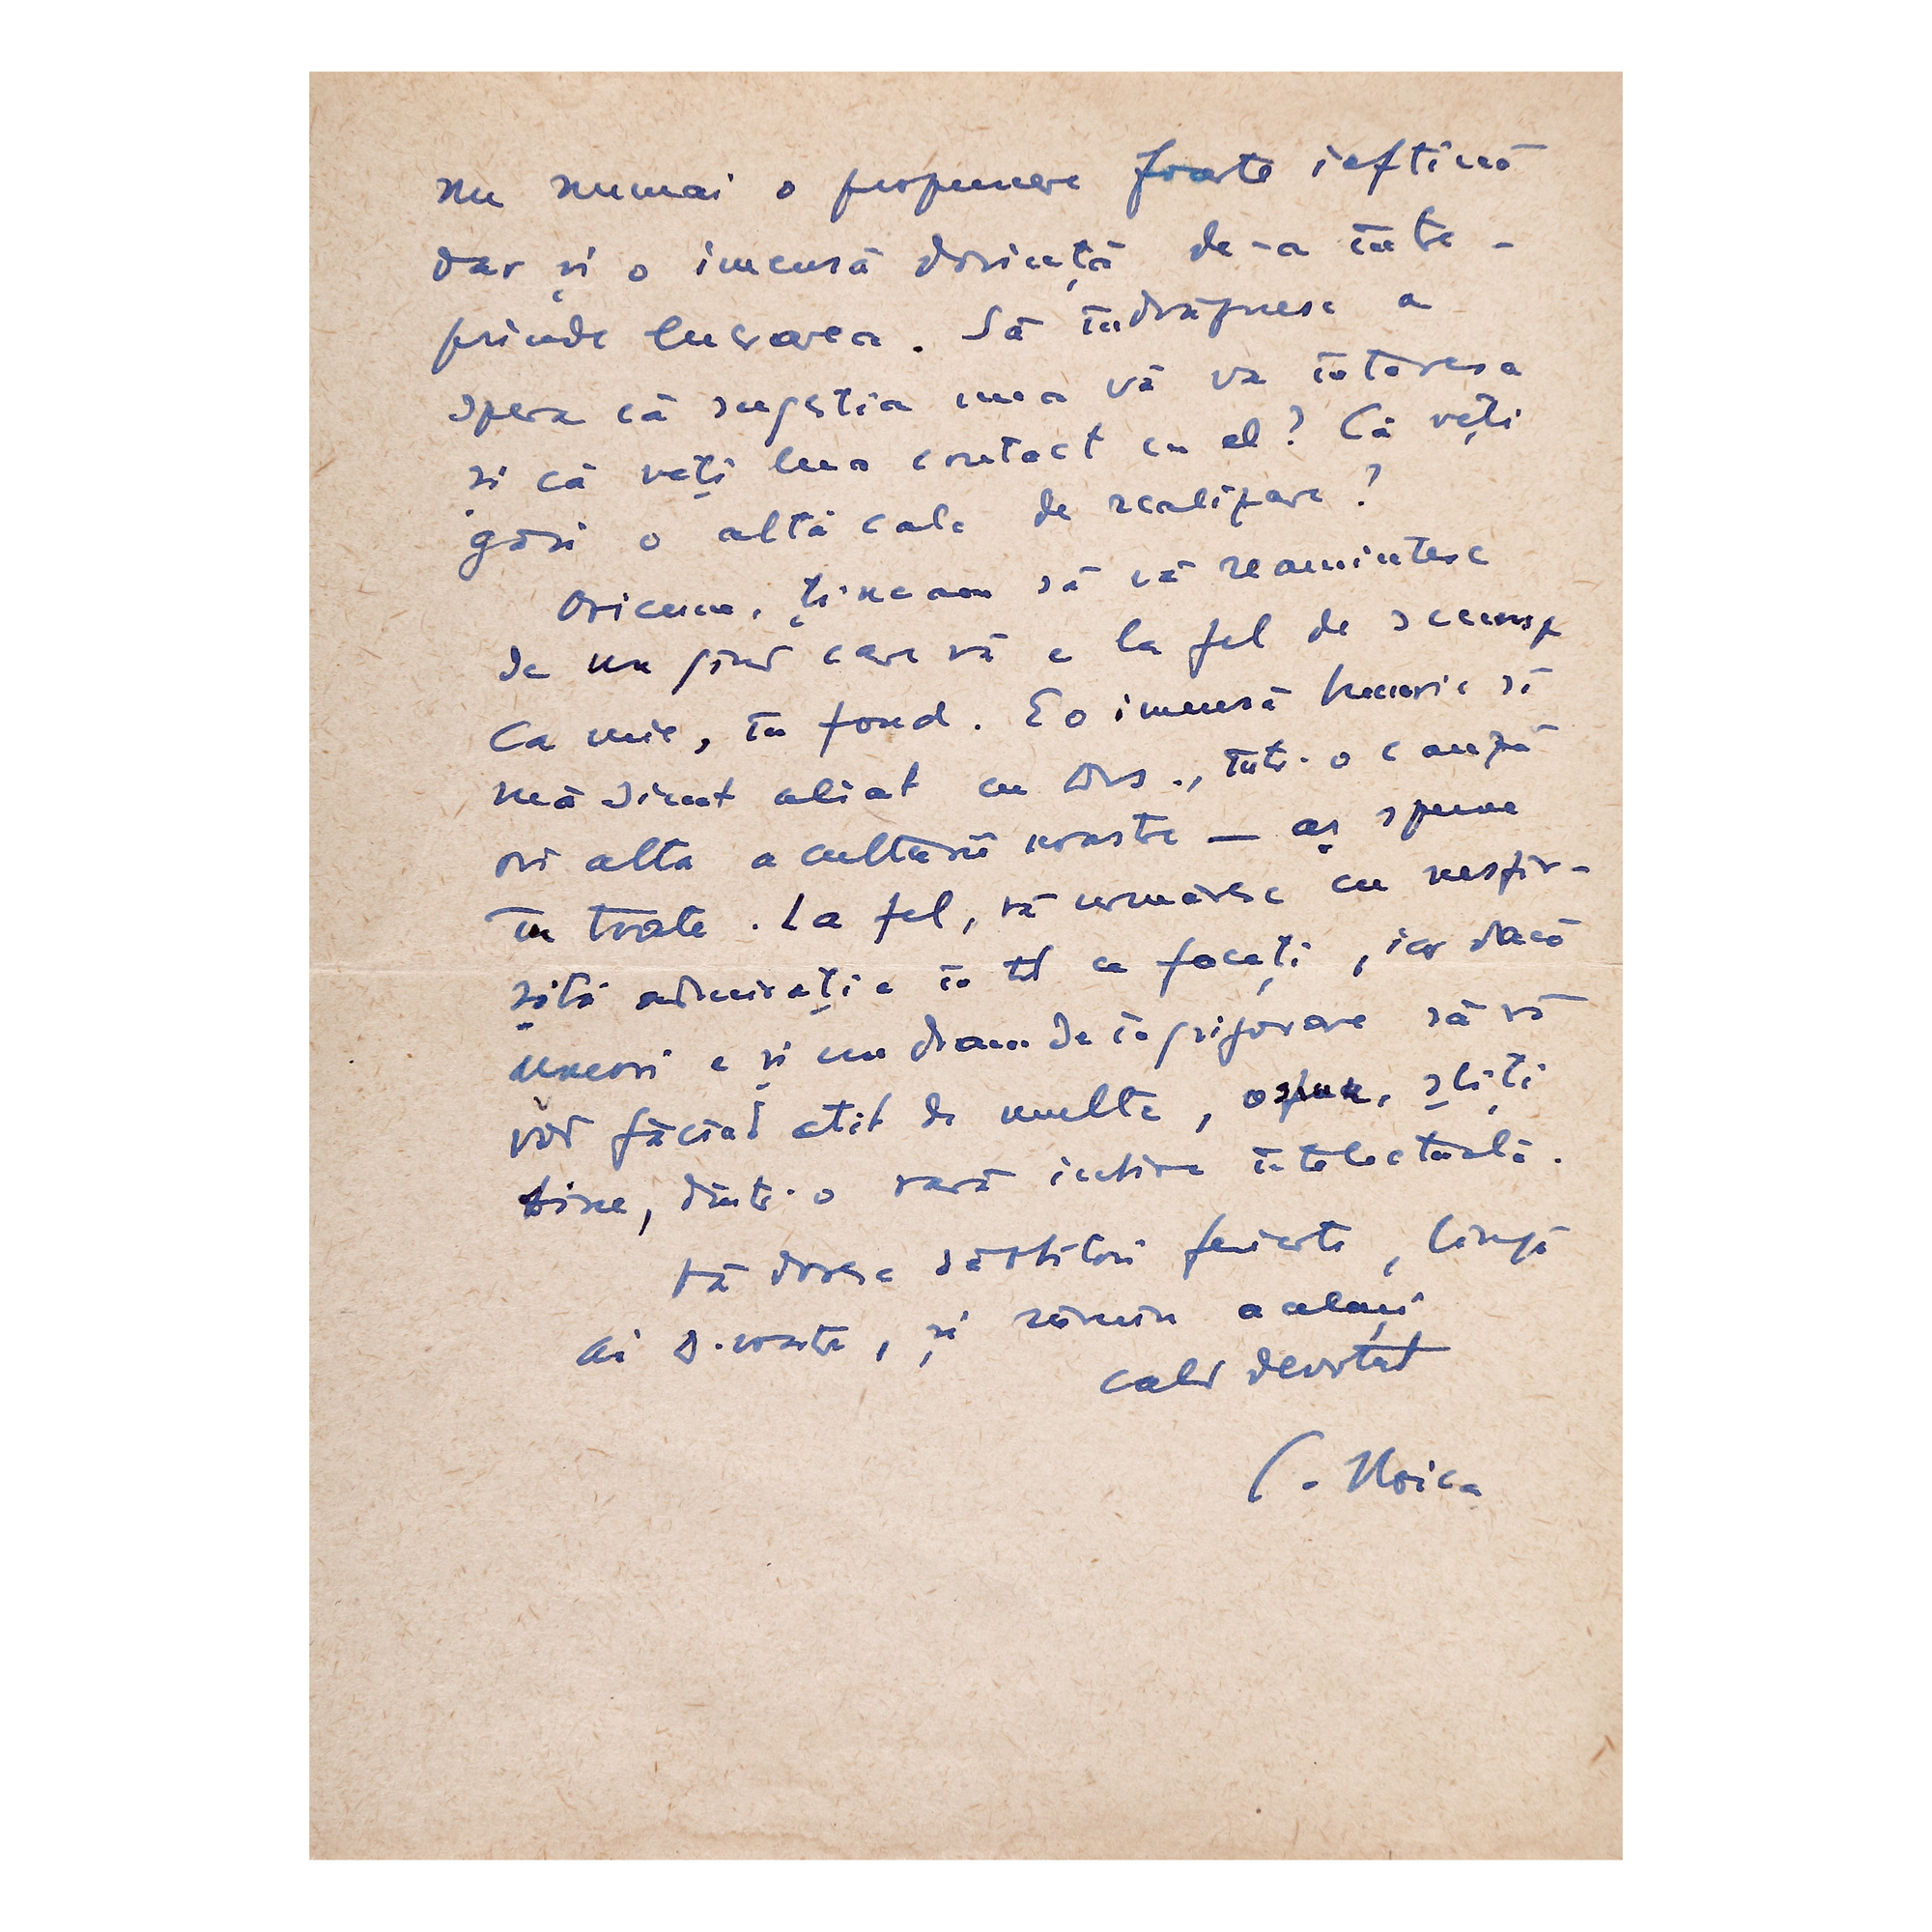 nu numai o propunere foarte ieftină
dar și o imensă dorință de-a între-
prinde lucrarea. Să îndrăznesc a
spera că sugestia mea vă va interesa
și că veți lua contact cu el? Că veți
găsi o altă cale de realizare?
Oricum, țineam să vă reamintesc
de un gînd care vă e la fel de scump
ca mie, în fond. E o imensă bucurie să
mă simt aliat cu Dvs., într-o cauză
ori alta a culturii noastre — aș spune
în toate. La fel, vă urmăresc cu nesfîr-
șită admirație în tot ce faceți, iar dacă
uneori e și un dram de îngrijorare să vă
văd făcînd atît de multe, o spun, știți
bine, dintr-o rară iubire intelectuală.
Vă doresc sărbători fericite, lîngă
ai D.voastră, și rămîn același
cald devotat
C. Noica